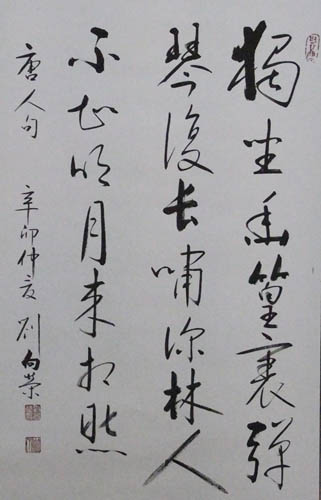 獨坐幽篁裏彈
琴復長嘯深林人
不知明月来相照
唐人句
辛卯仲夏 刘向榮